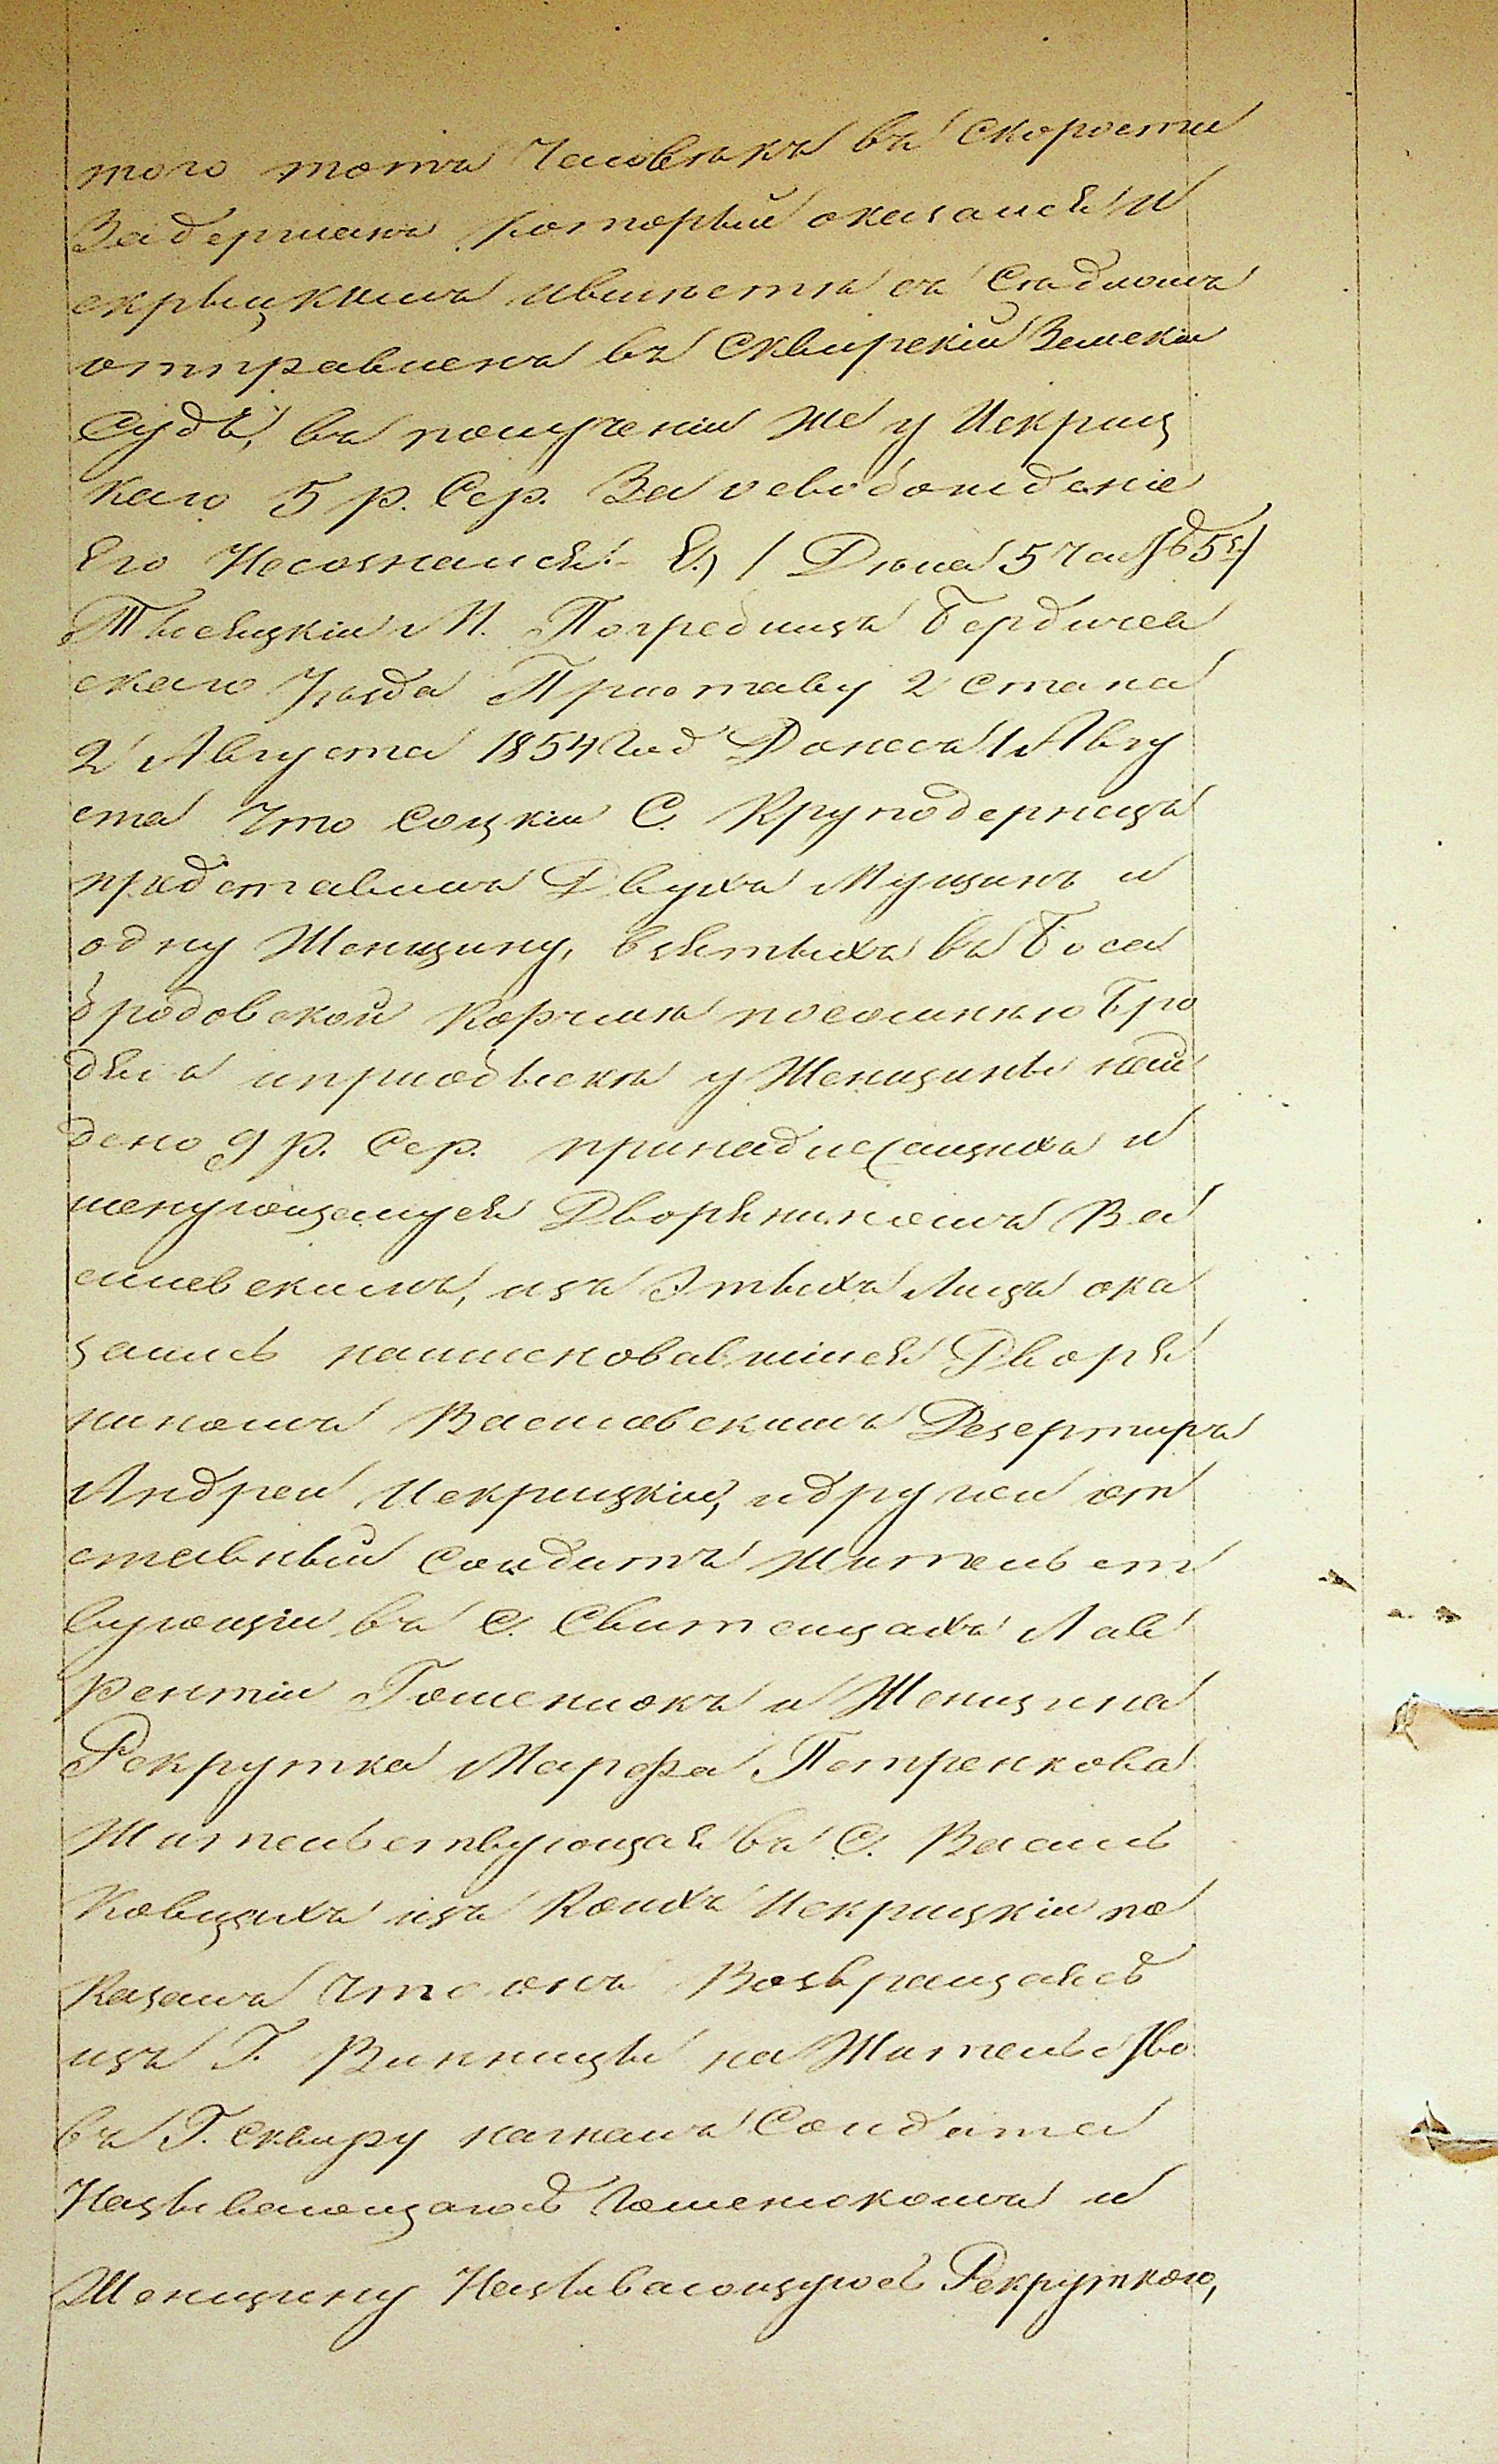 того тотъ Человѣкъ въ скорости
Задержанъ который оказался И
скрыцкимъ ивмѣстѣ съ Слѣдчомъ
отправленъ въ Сквирскій Земскій
Судъ, въ полученіи же у Искриц
каго 5 р. Сер. За освобожденіе
Его Несознался. Е.) / Дѣла 57
М. Погребища Бердичев
скаго Уѣзда Приставу 2 стана
2 Августа 1854 год Донесъ 1 Авгу
ста Что соцкій С. Круподеринецъ
представилъ Двухъ Мущинъ и
одну Женщину, взятыхъ въ Бѣла
бродовской Корчмѣ посомнѣнію Бро
дягъ ипри обыскѣ у Женщины най
дено 9 р. Сер. принадлежащихъ и
менующемуся Дворяниномъ Ва
силевскимъ, изъ Этыхъ Лицъ ока
зались наименовавшійся Дворя
ниномъ Василевскимъ Дезертиръ
Андрей Искрицкій, идругой от
ставный Солдатъ Жительст
вующій въ С. Свитенцахъ Лав
рентій Гоменюкъ и Женщина
Рекрутка Марфа Петренкова
Жительствующая въ С. Василь
Ковцахъ изъ Коихъ Искрицкій по
Казалъ Что онъ Возвращаясь
изъ Г. Винницы на Жительство
въ Г. Сквиру нагналъ Солдата
Называющагось Гоменюкомъ и
Женщину Называющуюсь Рекруткою,